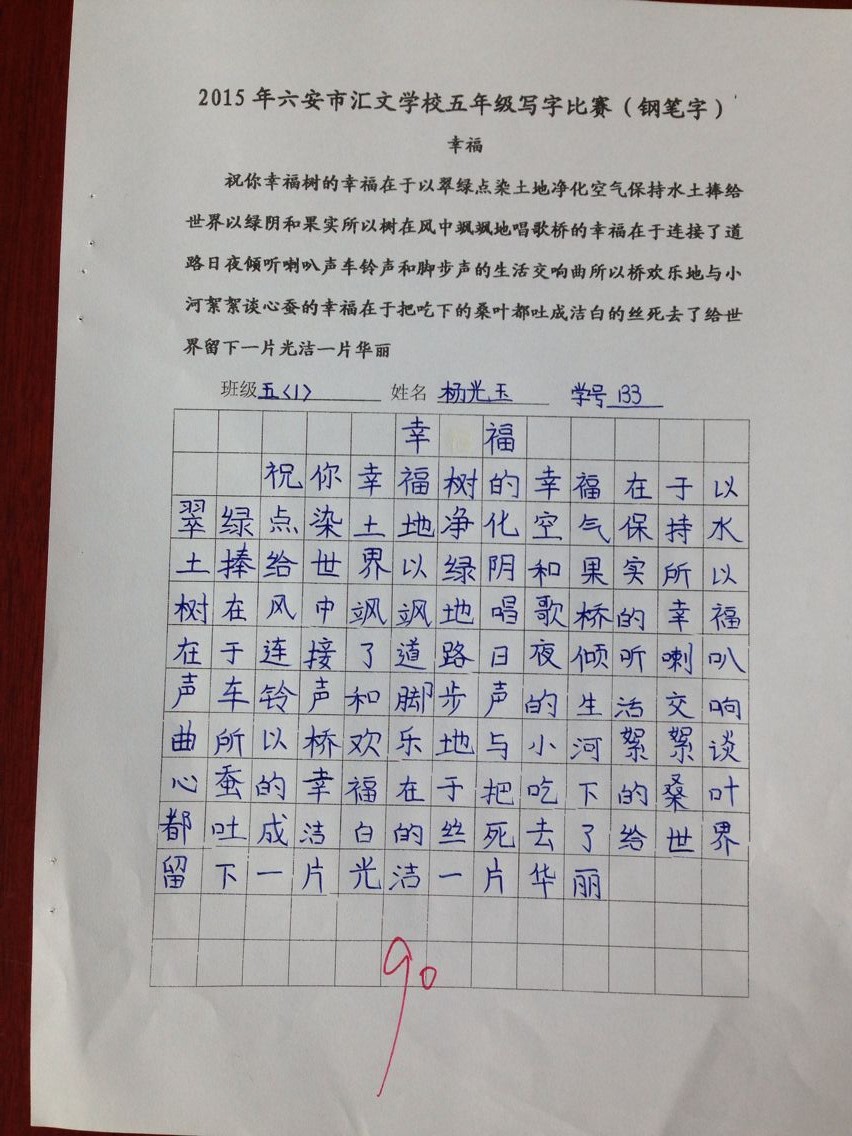 2015年六安市汇文学校五年级写字比赛（钢笔字）
幸福
祝你幸福树的幸福在于以翠绿点染土地净化空气保持水土捧给
世界以绿阴和果实所以树在风中飒飒地唱歌桥的幸福在于连接了道
路日夜倾听喇叭声车铃声和脚步声的生活交响曲所以桥欢乐地与小
河絮絮谈心蚕的幸福在于把吃下的桑叶都吐成洁白的丝死去了给世
界留下一片光洁一片华丽
班级五〈1〉 姓名 杨光玉 学号 133
幸福
祝你幸福树的幸福在于以
翠绿点染土地净化空气保持水
土捧给世界以绿阴和果实所以
树在风中飒飒地唱歌桥的幸福
在于连接了道路日夜倾听喇叭
声车铃声和脚步声的生活交响
曲所以桥欢乐地与小河絮絮谈
心蚕的幸福在于把吃下的桑叶
都吐成洁白的丝死去了给世界
留下一片光洁一片华丽
90